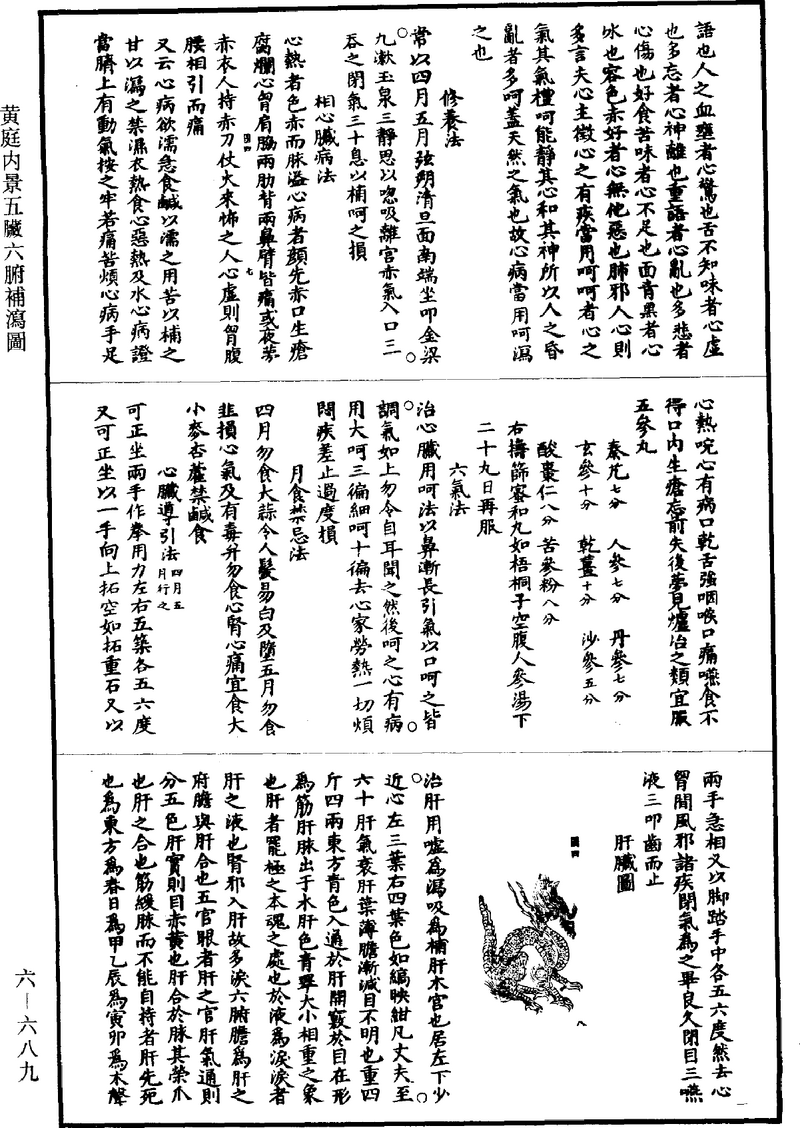 黄庭內景五臟六腑補瀉圖
六—六八九
語也人之血壅者心驚也舌不知味者心虛
也多忘者心神離也重語者心亂也多悲者
心傷也好食苦味者心不足也面青黑者心
冰也容色赤好者心無他惡也肺邪入心則
多言夫心主徵心之有疾當用呵呵者心之
氣其氣禮呵能靜其心和其神所以人之昏
亂者多呵蓋天然之氣也故心病當用呵瀉
之也
修養法
常以四月五月弦朔清旦面南端坐叩金梁
九漱玉泉三靜思以吻吸離宮赤氣入口三
吞之閉氣三十息以補呵之損
相心臟病法
心熱者色赤而脉溢心病者顏先赤口生瘡
腐爛心胷肩脇兩肋背兩鼻臂皆痛或夜夢
赤衣人持赤刀仗火來怖之人心虛則胷腹
腰相引而痛
又云心病欲濡急食鹹以濡之用苦以補之
甘以瀉之禁濕衣熱食心惡熱及水心病證
當臍上有動氣按之牢若痛苦煩心病手足
心熱啘心有病口乾舌強咽喉口痛嚥食不
得口內生瘡忘前失後夢見爐冶之類宜服
五參丸
秦艽七分 人參七分 丹參七分
玄參十分 乾薑十分 沙參五分
酸棗仁八分 苦參粉八分
右擣篩蜜和丸如梧桐子空腹人參湯下
二十九日再服
六氣法
治心臟用呵法以鼻漸長引氣以口呵之皆
調氣如上勿令自耳聞之然後呵之心有病
用大呵三徧細呵十徧去心家勞熱一切煩
悶疾差止過度損
月食禁忌法
四月勿食大蒜令人髮易白及墮五月勿食
韭損心氣及有毒并勿食心腎心痛宜食大
小麥杏藿禁鹹食
心臟導引法四月五月行之
可正坐兩手作拳用力左右五築各五六度
又可正坐以一手向上拓空如拓重石又以
兩手急相叉以脚踏手中各五六度然去心
胷間風邪諸疾閉氣為之畢良久閉目三嚥
液三叩齒而止
肝臟圖
治肝用噓為瀉吸為補肝木宮也居左下少
近心左三葉右四葉色如縞映紺凡丈夫至
六十肝氣衰肝葉薄膽漸減目不明也重四
斤四兩東方青色入通於肝開竅於目在形
為筋肝脉出于水肝色青翠大小相重之象
也肝者罷極之本魂之處也於液為淚淚者
肝之液也腎邪入肝故多淚六腑膽為肝之
府膽與肝合也五官眼者肝之官肝氣通則
分五色肝實則目赤黃也肝合於脉其榮爪
也肝之合也筋緩脉而不能自持者肝先死
也為東方為春日為甲乙辰為寅卯為木聲